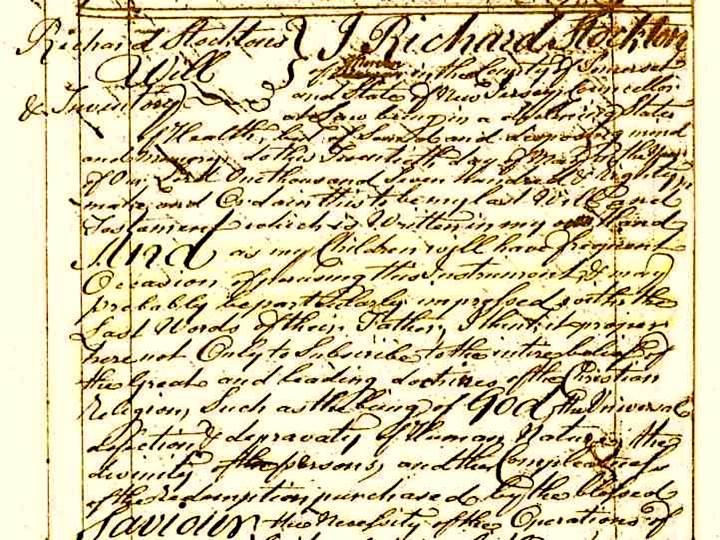 Richard Stocktons } I Richard Stockton
Will } of in the County of Somerset
& Inventory and State of New Jersey Councellor
at Law being in a declining State
of Health, but of Sound and disposing mind
and memory do this Twentieth day of May in the Year
of Our Lord One thousand Seven hundred & Eighty
make and Ordain this to be my last Will and
Testament which is Written in my own Hand
And as my Children will have frequent
Occasion of perusing this Instrument, & may
probably be particularly impressed with the
Last Words of their Father, I think it proper
here not Only to Subscribe to the intire belief of
the Great and leading doctrines of the Christian
religion, Such as the being of God, the Universal
defection & depravaty of Human Nature, the
divinity of the person, and the Compleatness
of the Redemption purchased by the blessed
Saviour the Necessity of the Operations of